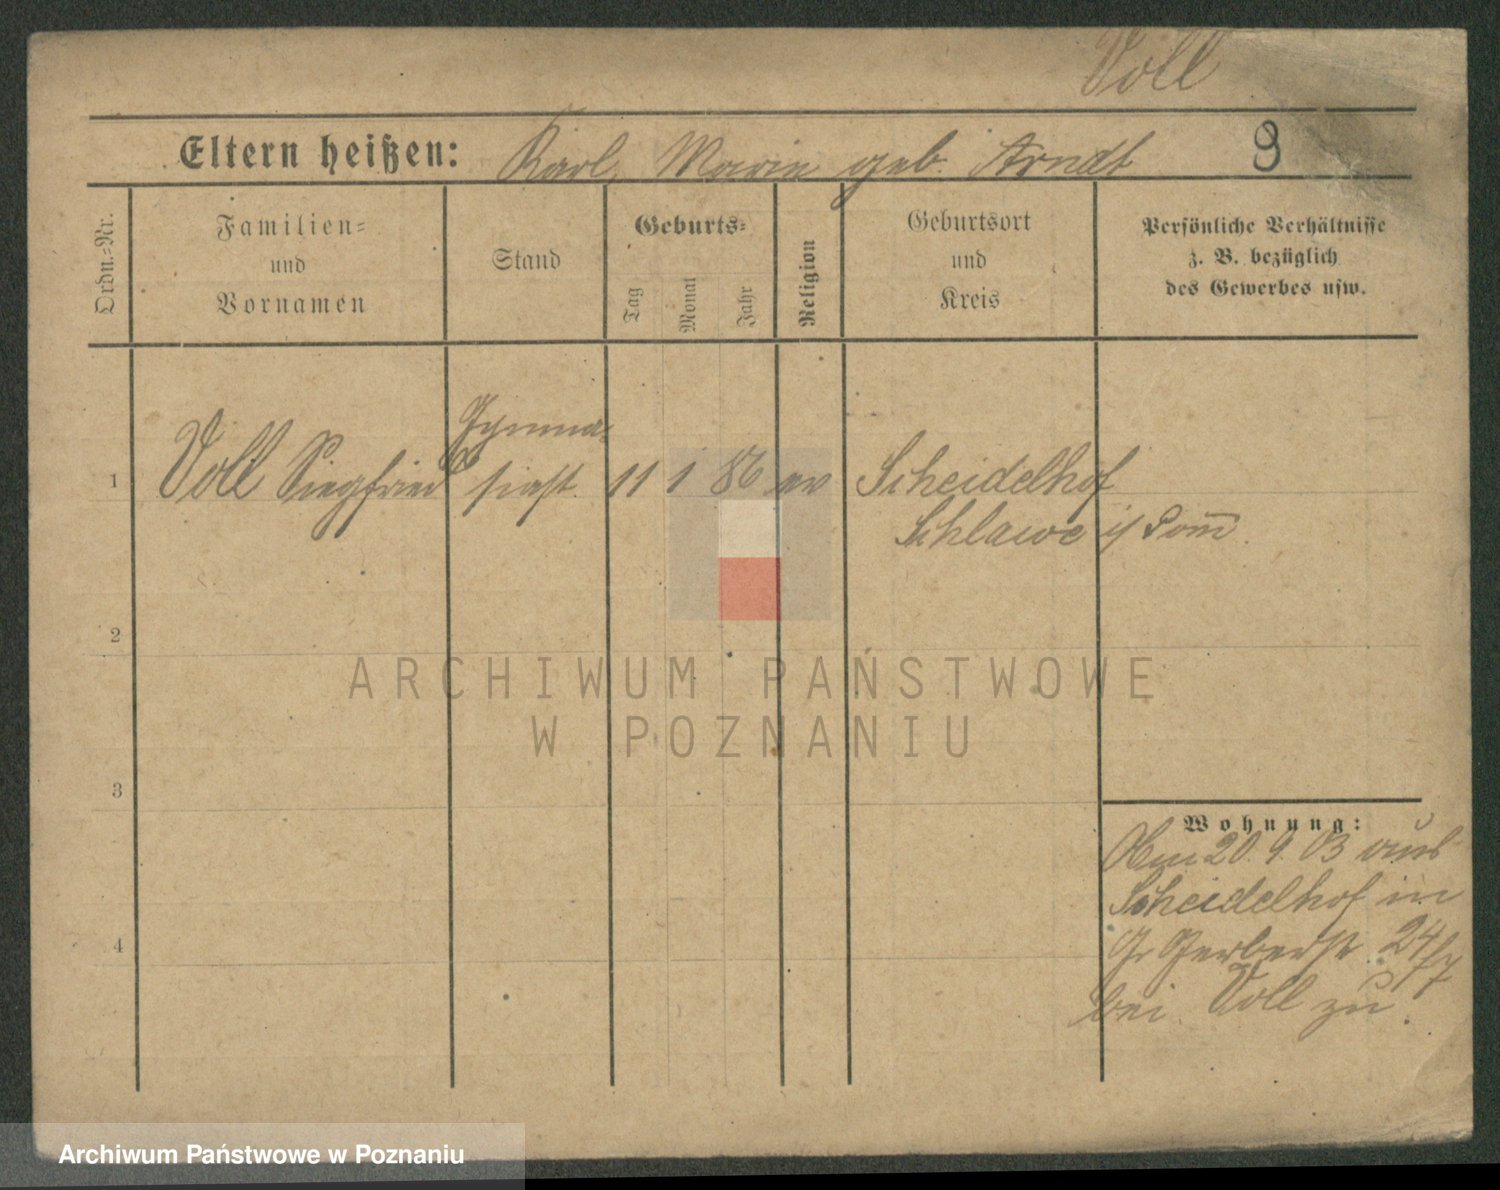 Voll
Eltern heißen: Karl, Marie geb. Arndt 8
Ordn.-Nr.
Familien-
und
Vornamen
Stand
Geburts-
Tag
Monat
Jahr
Religion
Geburtsort
und
Kreis
Persönliche Verhältnisse
z. B. bezüglich
des Gewerbes usw.
Gymna-
1 Voll Siegfried siast. 11 1 86 ev Scheidelhof
Schlawe i/ Pom̅.
2
ARCHIWUM PAŃSTWOWE
W POZNANIU
3
Wohnung:
Am 20.9.03 aus
Scheidelhof in
4
Gr Gerberst. 24/
bei Voll zu.
Archiwum Państwowe w Poznaniu